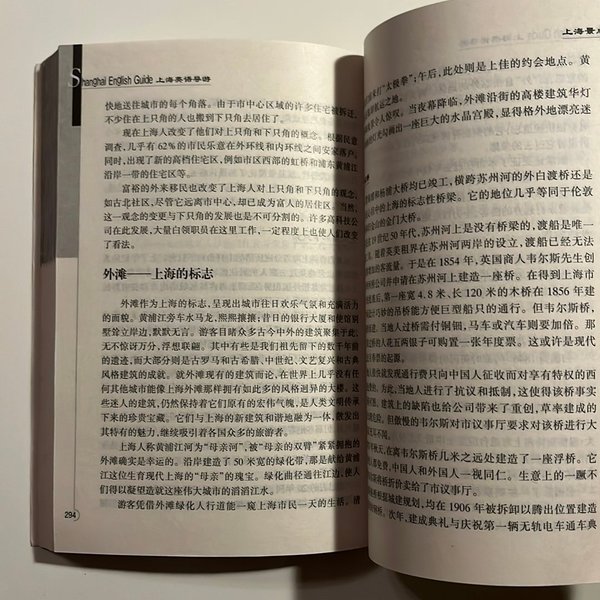 Shanghai English Guide 上海英语导游
快地送往城市的每个角落。由于市中心区域的许多住宅被拆迁,
不少住在上只角的人也搬到下只角去居住了。
现在上海人改变了他们对上只角和下只角的概念。根据民意
调查,几乎有 62%的市民乐意在外环线和内环线之间安家落户。
同时,出现了新的高档住宅区,例如市区西部的虹桥和浦东黄浦江
沿岸一带的住宅区等。
富裕的外来移民也改变了上海人对上只角和下只角的观念,
如古北社区,尽管它远离市中心,却已成为富人的居住区。当然,
这一观念的变更与下只角的发展也是不可分割的。许多高科技公
司在此发展,大量白领职员在这里工作,一定程度上也使人们改变
了看法。
外滩——上海的标志
外滩作为上海的标志,呈现出城市往日欢乐气氛和充满活力
的面貌。黄浦江旁车水马龙,熙熙攘攘;昔日的银行大厦和使馆别
墅耸立岸边,默默无言。游客目睹众多古今中外的建筑聚集于此,
无不惊讶万分,浮想联翩。其中有些是我们祖先留下的数千年前
的遗迹,而大部分则是古罗马和古希腊、中世纪、文艺复兴和古典
风格建筑的成就。就外滩现有的建筑而论,在世界上几乎没有任
何其他城市能像上海外滩那样拥有如此多的风格迥异的大楼。这
些迷人的建筑,仍然保持着它们原有的宏伟气魄,是人类文明传承
下来的珍贵宝藏。它们与上海的新建筑和谐地融为一体,散发出
其特有的魅力,继续吸引着各国众多的旅游者。
上海人称黄浦江河为“母亲河”,被“母亲的双臂”紧紧拥抱的
外滩确实是幸运的。沿岸建造了 50 米宽的绿化带,那是献给黄浦
江这位生育现代上海的“母亲”的瑰宝。绿化曲径通往江边,使人
们得以凝望造就这座伟大城市的滔滔江水。
游客凭借外滩绿化人行道能一窥上海市民一天的生活。清
294
上海景点
来打“太极拳”;午后,此处则是上佳的约会地点。黄
之地。
令人惊叹。当夜幕降临,外滩沿街的高楼建筑华灯
灯光勾画出一座巨大的水晶宫殿,显得格外地漂亮迷
和杨浦大桥均已竣工,横跨苏州河的外白渡桥还是
中的上海的标志性桥梁。它的地位几乎等同于伦敦
的金门大桥。
19 世纪 50 年代,苏州河上是没有桥梁的,渡船是唯一
随着英美租界在苏州河两岸的设立,渡船已经无法
的客流量。于是在 1854 年,英国商人韦尔斯先生创
公司并申请在苏州河上建造一座桥。在得到上海市
第一座宽 4.8 米、长 120 米的木桥在 1856 年建
巧妙的吊桥能方便巨型船只的通行。但韦尔斯桥,
当地人过桥需付铜钿,马车或汽车则要加倍。那
的人花五两银子可购置一张年度票。这或许是现代
的起源。
就发现通行费只向中国人征收而对享有特权的西
方,为此,当地人进行了抗议和抵制,这使得该桥事实
建筑上的缺陷也给公司带来了重创,草率建成的
但傲慢的韦尔斯对市议事厅要求对该桥进行大
不同。
年,在离韦尔斯桥几米之远处建造了一座浮桥。它
免费,中国人和外国人一视同仁。生意上的一蹶不
得将桥折价卖给了市议事厅。
根据城建规划,均在 1906 年被拆卸以腾出位置建造
钢桥。次年,建成典礼与庆祝第一辆无轨电车通车典